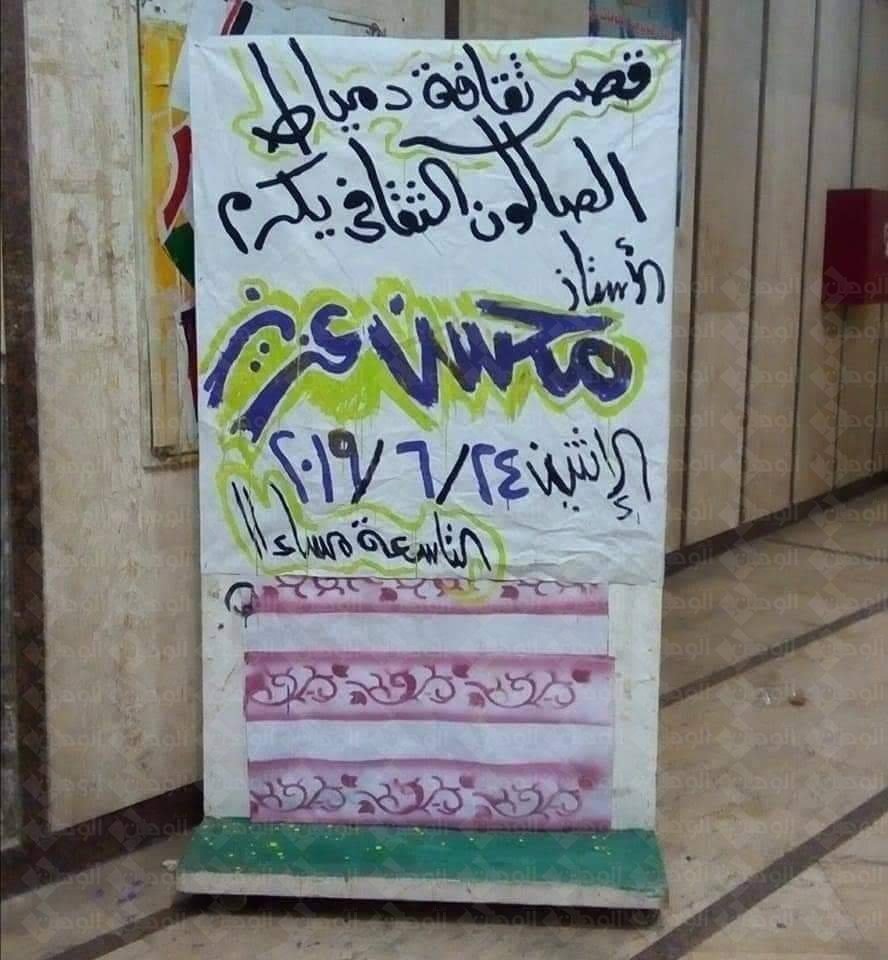 قصر ثقافة دمياط
الصالون الثقافى يكرم
الأستاذ
محسن عزت
الإثنين ٢٤/ ٦/ ٢٠١٩
التاسعة مساءا !!
الوطن